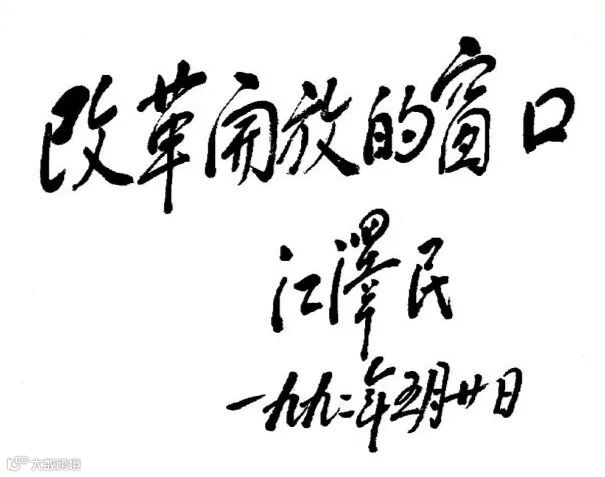 改革開放的窗口
江澤民
一九九二年五月廿日
大数跨境